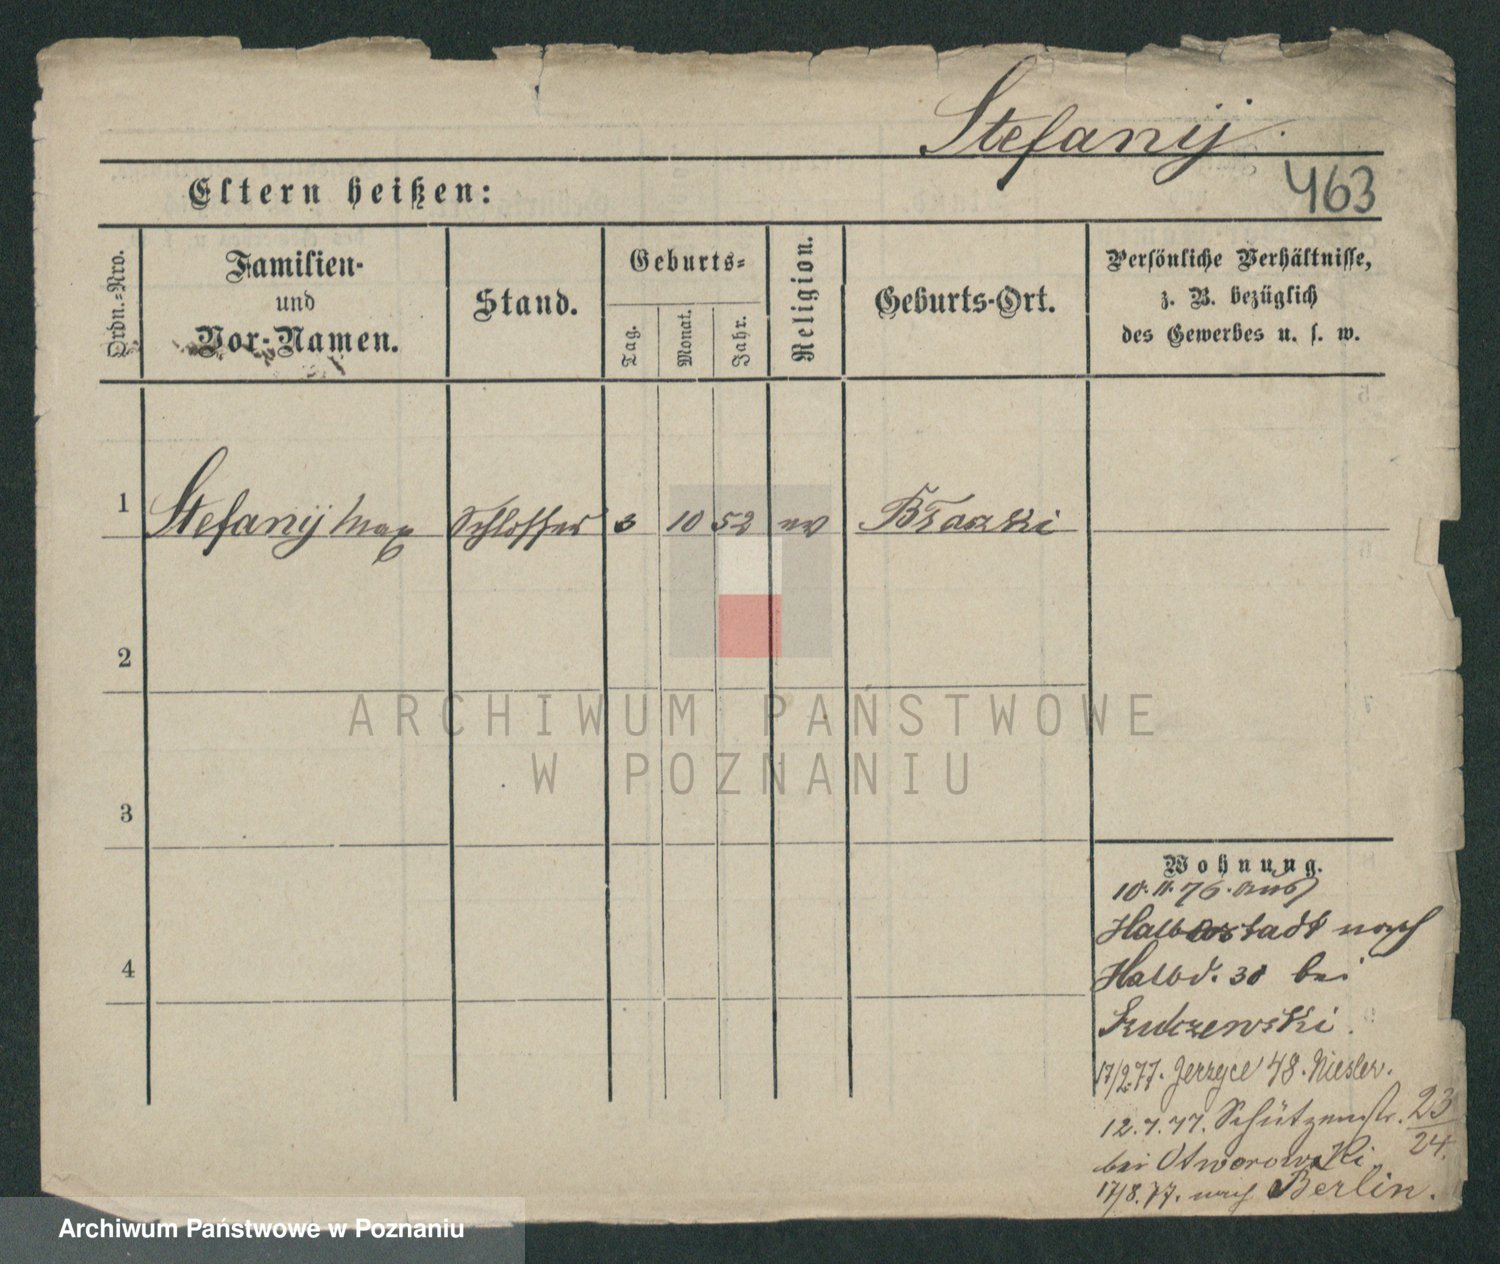 Stefanÿ.
463
Eltern heißen:
Ordn.=Nro.
Familien-
und
Vor-Namen.
Stand.
Geburts=
Tag.
Monat.
Jahr.
Religion.
Geburts-Ort.
Persönliche Verhältnisse,
z. B. bezüglich
des Gewerbes u. s. w.
1 Stefanÿ Max Schlosser 3 10 52 ev Błaszki
2
3
4
Wohnung.
10.11.76. aus
Halberstadt nach
Halbd. 30 bei
Szulczewski.
17/2.77. Jerzyce 48. Niesler.
12.7.77. Schützenstr. 23/24.
bei Otworowski
17/8.77. nach Berlin.
ARCHIWUM PAŃSTWOWE
W POZNANIU
Archiwum Państwowe w Poznaniu